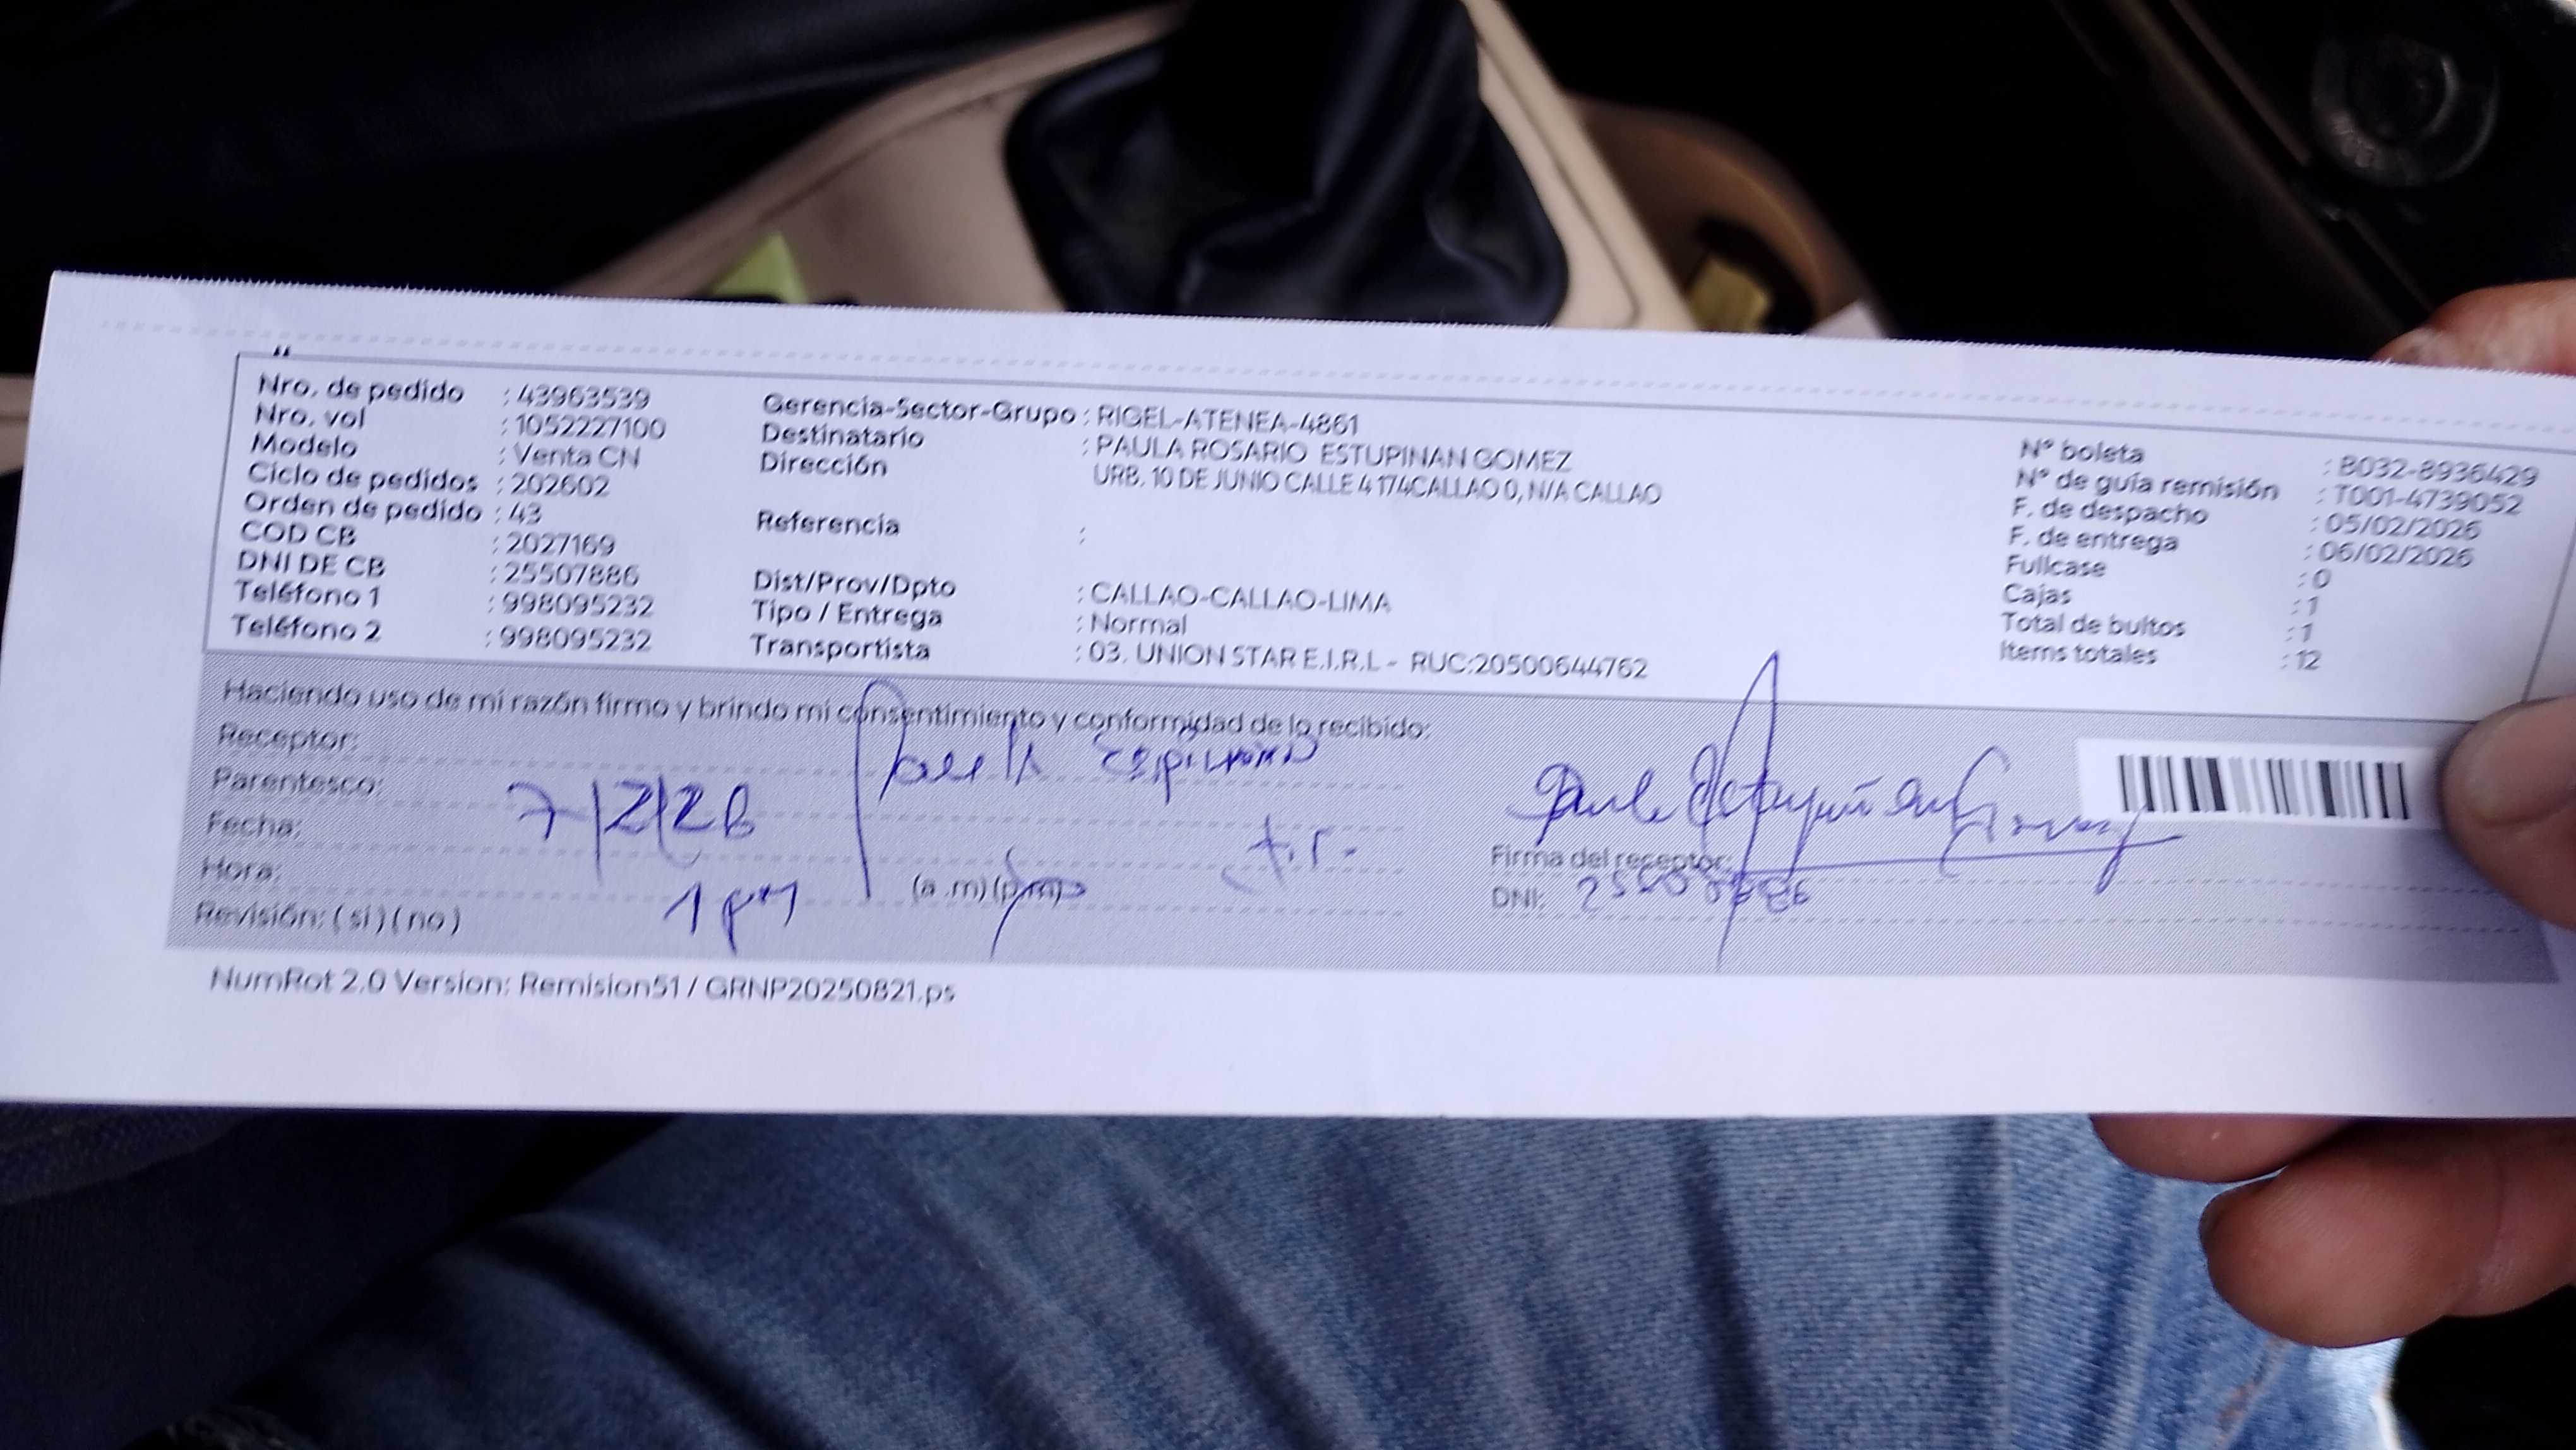 Nro. de pedido : 43963539
Nro. vol : 1052227100
Modelo : Venta CN
Ciclo de pedidos : 202602
Orden de pedido : 43
COD CB : 2027169
DNI DE CB : 25507886
Teléfono 1 : 998095232
Teléfono 2 : 998095232
Gerencia-Sector-Grupo : RIGEL-ATENEA-4861
Destinatario : PAULA ROSARIO ESTUPINAN GOMEZ
Dirección URB. 10 DE JUNIO CALLE 4 174CALLAO 0, N/A CALLAO
Referencia :
Dist/Prov/Dpto : CALLAO-CALLAO-LIMA
Tipo / Entrega : Normal
Transportista : 03. UNION STAR E.I.R.L - RUC:20500644762
N° boleta : B032-8936429
N° de guía remisión : T001-4739052
F. de despacho : 05/02/2026
F. de entrega : 06/02/2026
Fullcase : 0
Cajas : 1
Total de bultos : 1
Items totales : 12
Haciendo uso de mi razón firmo y brindo mi consentimiento y conformidad de lo recibido:
Receptor:
Parentesco:
Fecha: 7/2/26
Hora: 1 pm (a .m) (p.m)
Revisión: ( si ) ( no )
Firma del receptor:
DNI:
NumRot 2.0 Version: Remision51 / GRNP20250821.ps